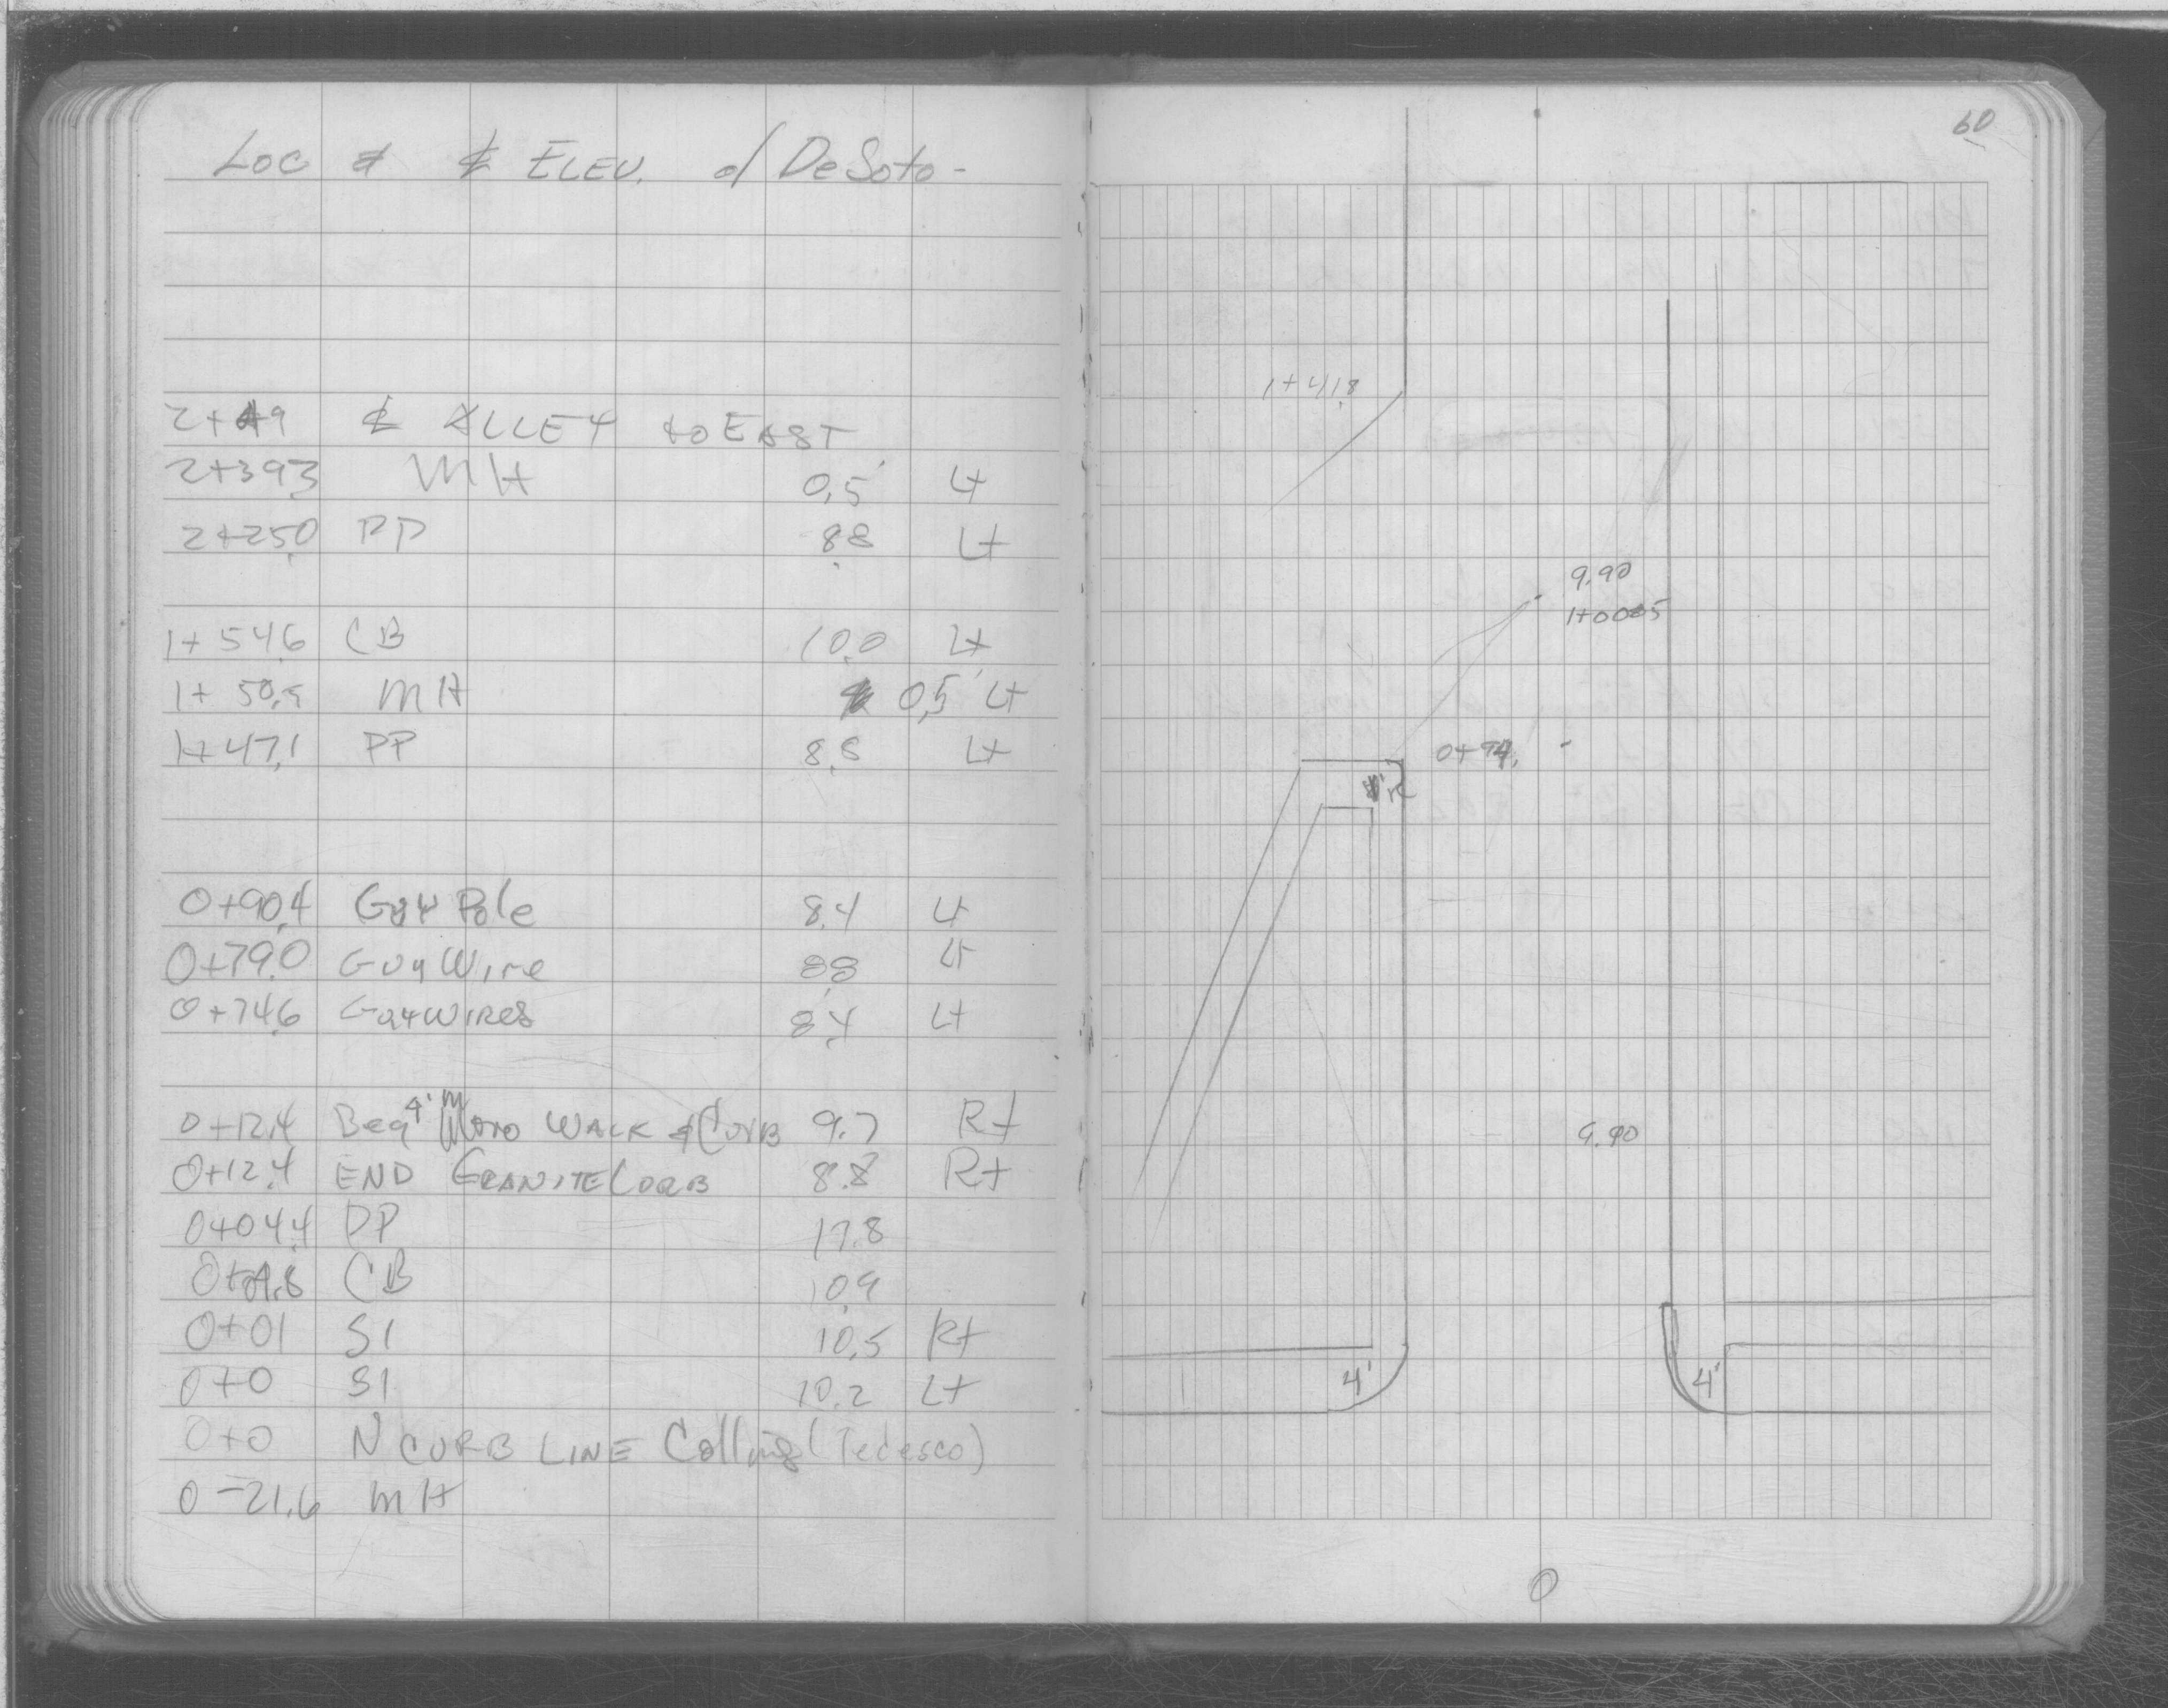 Loc & ℄ ELEV. of DeSoto-
2+49 ℄ ALLEY to EAST
2+39.3 MH 0.5' Lt
2+25.0 PP 8.8 Lt
1+54.6 CB 10.0 Lt
1+50.5 MH 0.5' Lt
1+47.1 PP 8.8 Lt
0+90.4 Guy Pole 8.4 Lt
0+79.0 Guy Wire 8.8 Lt
0+74.6 Guy WIRES 8.4 Lt
0+12.4 Beg 4' Mono WALK & CURB 9.7 Rt
0+12.4 END GRANITE CURB 8.8 Rt
0+04.4 PP 17.8
CB 10.9
0+01 SI 10.5 Rt
0+0 SI 10.2 Lt
0+0 N CURB LINE Collins (Tedesco)
0-21.6 MH
60
1+41.8
9.90
1+00.5
0+94.
9.90
4'
4'
0